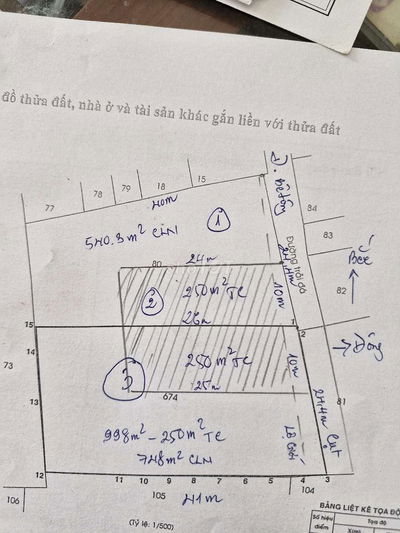 đồ thửa đất, nhà ở và tài sản khác gắn liền với thửa đất
15
18
79
78
77
40m
1
Đ. bê tông
84
83
82
81
540.8m² CLN
24m
80
24,4m
Đường trải đá
Bắc
2
250m² TC
10m
26m
15
1
2
→ Đông
14
73
13
250m² TC
10m
25m
674
24,4m
Cụt
998m² - 250m² TC
748m² CLN
Lộ Giới
12
11
10
9
8
7
6
5
4
3
106
105
41m
104
(Tỷ lệ: 1/500)
BẢNG LIỆT KÊ TỌA ĐỘ
Số hiệu
điểm
Tọa độ
X(m)